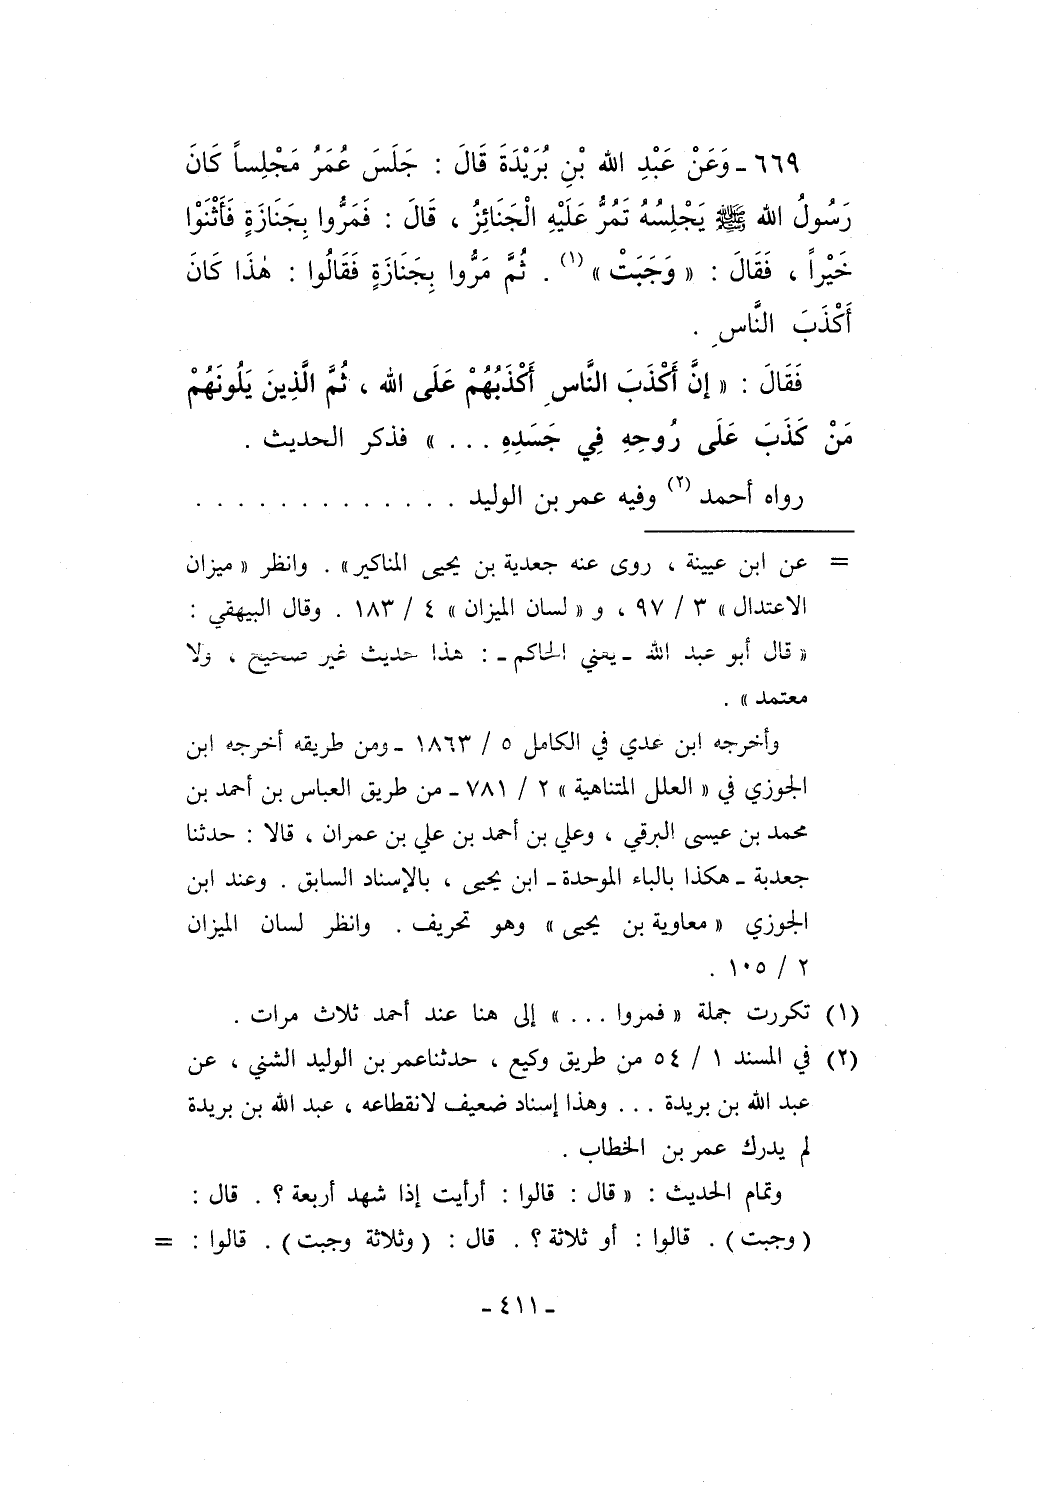 ٦٦٩ ـ وَعَنْ عَبْدِ الله بْنِ بُرَيْدَةَ قَالَ : جَلَسَ عُمَرُ مَجْلِساً كَانَ
رَسُولُ الله ﷺ يَجْلِسُهُ تَمُرُّ عَلَيْهِ الْجَنَائِزُ ، قَالَ : فَمَرُّوا بِجَنَازَةٍ فَأَثْنَوْا
خَيْراً ، فَقَالَ : « وَجَبَتْ » (١) . ثُمَّ مَرُّوا بِجَنَازَةٍ فَقَالُوا : هٰذَا كَانَ
أَكْذَبَ النَّاسِ .
فَقَالَ : « إِنَّ أَكْذَبَ النَّاسِ أَكْذَبُهُمْ عَلَى الله ، ثُمَّ الَّذِينَ يَلُونَهُمْ
مَنْ كَذَبَ عَلَى رُوحِهِ فِي جَسَدِهِ ... » فذكر الحديث .
رواه أحمد (٢) وفيه عمر بن الوليد . . . . . . . . . . . . .
= عن ابن عيينة ، روى عنه جعدية بن يحيى المناكير» . وانظر « ميزان
الاعتدال » ٣ / ٩٧ ، و « لسان الميزان » ٤ / ١٨٣ . وقال البيهقي :
« قال أبو عبد الله ـ يعني الحاكم ـ : هذا حديث غير صحيح ، ولا
معتمد » .
وأخرجه ابن عدي في الكامل ٥ / ١٨٦٣ ـ ومن طريقه أخرجه ابن
الجوزي في « العلل المتناهية » ٢ / ٧٨١ ـ من طريق العباس بن أحمد بن
محمد بن عيسى البرقي ، وعلي بن أحمد بن علي بن عمران ، قالا : حدثنا
جعدبة ـ هكذا بالباء الموحدة ـ ابن يحيى ، بالإسناد السابق . وعند ابن
الجوزي « معاوية بن يحيى » وهو تحريف . وانظر لسان الميزان
٢ / ١٠٥ .
(١) تكررت جملة « فمروا ... » إلى هنا عند أحمد ثلاث مرات .
(٢) في المسند ١ / ٥٤ من طريق وكيع ، حدثناعمر بن الوليد الشني ، عن
عبد الله بن بريدة ... وهذا إسناد ضعيف لانقطاعه ، عبد الله بن بريدة
لم يدرك عمر بن الخطاب .
وتمام الحديث : « قال : قالوا : أرأيت إذا شهد أربعة ؟ . قال :
( وجبت ) . قالوا : أو ثلاثة ؟ . قال : ( وثلاثة وجبت ) . قالوا : =
ـ ٤١١ ـ